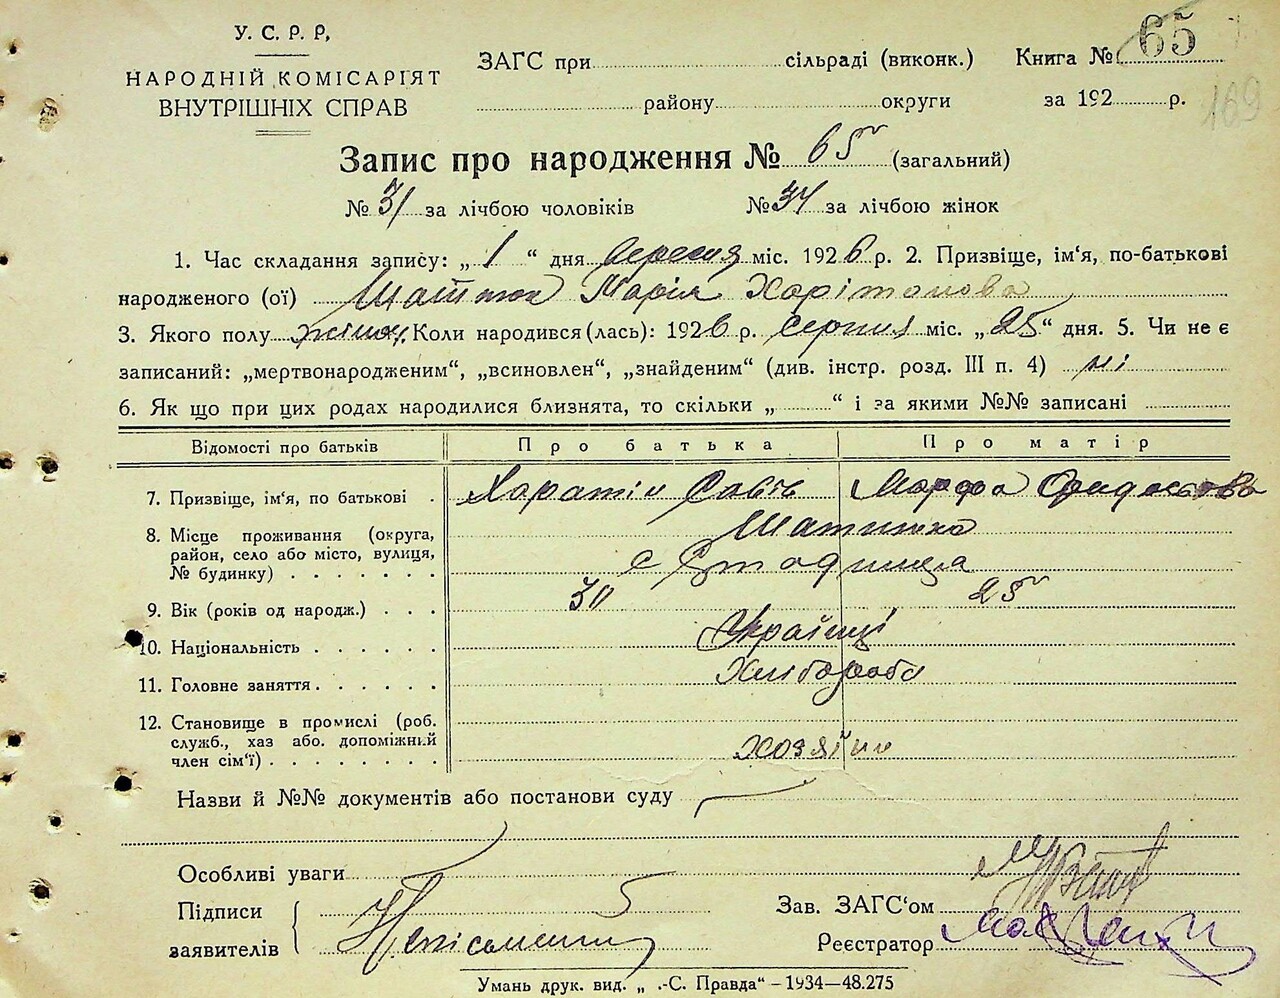 У. С. Р. Р,
НАРОДНІЙ КОМІСАРІЯТ
ВНУТРІШНІХ СПРАВ
ЗАГС при сільраді (виконк.) Книга № 65
району округи за 192 р.
169
Запис про народження № 65 (загальний)
№ 31 за лічбою чоловіків № 34 за лічбою жінок
1. Час складання запису: „ 1 “ дня вересня міс. 1926 р. 2. Призвіще, ім'я, по-батькові
народженого (ої) Марія Харітонова
3. Якого полу жіноч. Коли народився (лась): 1926 р. серпня міс. „25“ дня. 5. Чи не є
записаний: „мертвонародженим“, „всиновлен“, „знайденим“ (див. інстр. розд. III п. 4) ні
6. Як що при цих родах народилися близнята, то скільки „ “ і за якими №№ записані
Відомості про батьків Про батька Про матір
7. Призвіще, ім'я, по батькові . Харатін Савів Марфа
8. Місце проживання (округа,
район, село або місто, вулиця,
№ будинку) . . . . . . . с Стадница
9. Вік (років од народж.) . . . 30 25
10. Національність . . . . . . Українці
11. Головне заняття . . . . . . Хлібороби
12. Становище в промислі (роб.
служб., хаз або. допоміжний
член сім'ї) . . . . . . . . хозяїни
Назви й №№ документів або постанови суду
Особливі уваги
Підписи
заявителів Неписьменни
Зав. ЗАГС'ом
Реєстратор
Умань друк. вид. „ .-С. Правда“ – 1934—48.275